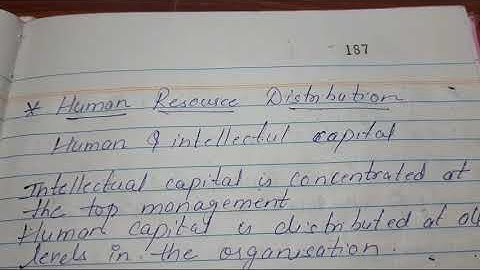 187
* Human Resource Distribution
Human & intellectul capital
Intellectual capital is concentrated at
the top management
Human capital is distributed at al
levels in the organisation.